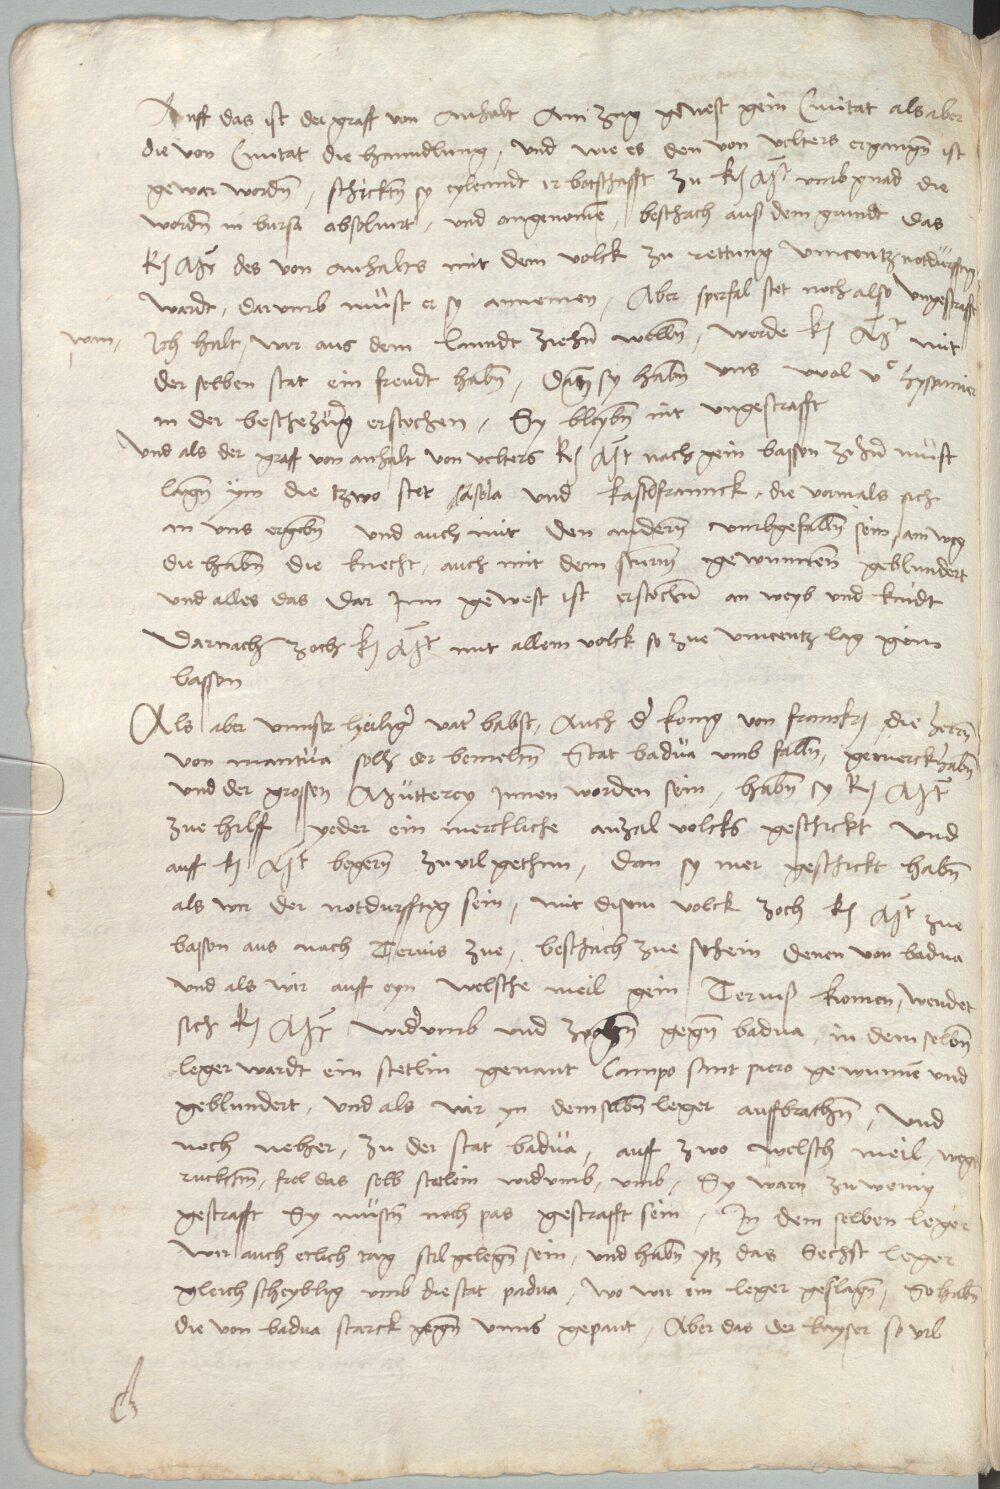 Auff das ist der graff von anhalt Am zug gewest gein Civitat als aber
die von Civitat die hanndlung, und wie es den von velters ergangen ist
gewar worden, schickten sy eylenndt ir botschafft zu kj Mt umb gnad die
worden in bursa absolvirt, und angenomen, beschach auß dem grundt das
kj Mt des von anhalts mit dem volck zu rettung vincentz notdurfftig
wardt, darumb must er sy annemen, Aber sperfal stet noch also ungestrafft
wan, Ich halt, wir aus dem lanndt ziehen wellen, werde kj Mt mit
der selben stat ein freudt haben, Dan sy haben uns wol vc hyspanier
in der beschezung erstochen, Sy bleyben nit ungestrafft
Und als der graff von anhalt von velters kj Mt nach gein bassen ziehen must
lagen ym die tzwo stet Asola und kastelfrannck, die vormals sich
an uns ergeben und auch mit den anderen umbgefallen sein, am weg
die haben die knecht, auch mit dem sturm gewunnen geblundert
und alles das dar Inn gewest ist erstochen an weyb und kindt
Darnach zoch kj Mt mit allem volck so zue vincentz lag gein
bassen
Als aber unnser heiliger vater babst, auch der konig von franckrj, die herrn
von mantua solh der bemelten Stat badua umb fallen, gemerckt haben
und der grossen Mutterey Innen worden sein, haben sy kj Mt
zue hilff yeder ein merckliche anzal volcks geschickt und
auff kj Mt begern zuvil gethun, dan sy mer geschickt haben
als wir der notdurfftig sein, mit disem volck zoch kj Mt zue
bassen aus nach Tervis zue, beschach zue schein denen von badua
und als wir auff eyn welsche meil gein Tervis komen, wendet
sich kj Mt widerumb und zogen gegen badua, in dem selben
leger wardt ein stetlin genant Campo sant piero gewunnen und
geblundert, und als wir yn demselben leger auffbrachen, Und
noch neher, zu der stat badua, auff zwo welsch meil, wegs
ruckten, fiel das selb stetlein widerumb, umb, Sy warn zu wenig
gestrafft Sy musten noch pas gestrafft sein, In dem selben leger
wir auch etlich tag stil gelegen sein, und haben ytz das Sechst leger
gleich scheyblig umb die stat padua, wo wir ein leger geslagen, So haben
die von badua starck gegen unns gepaut, Aber das der kayser so vil